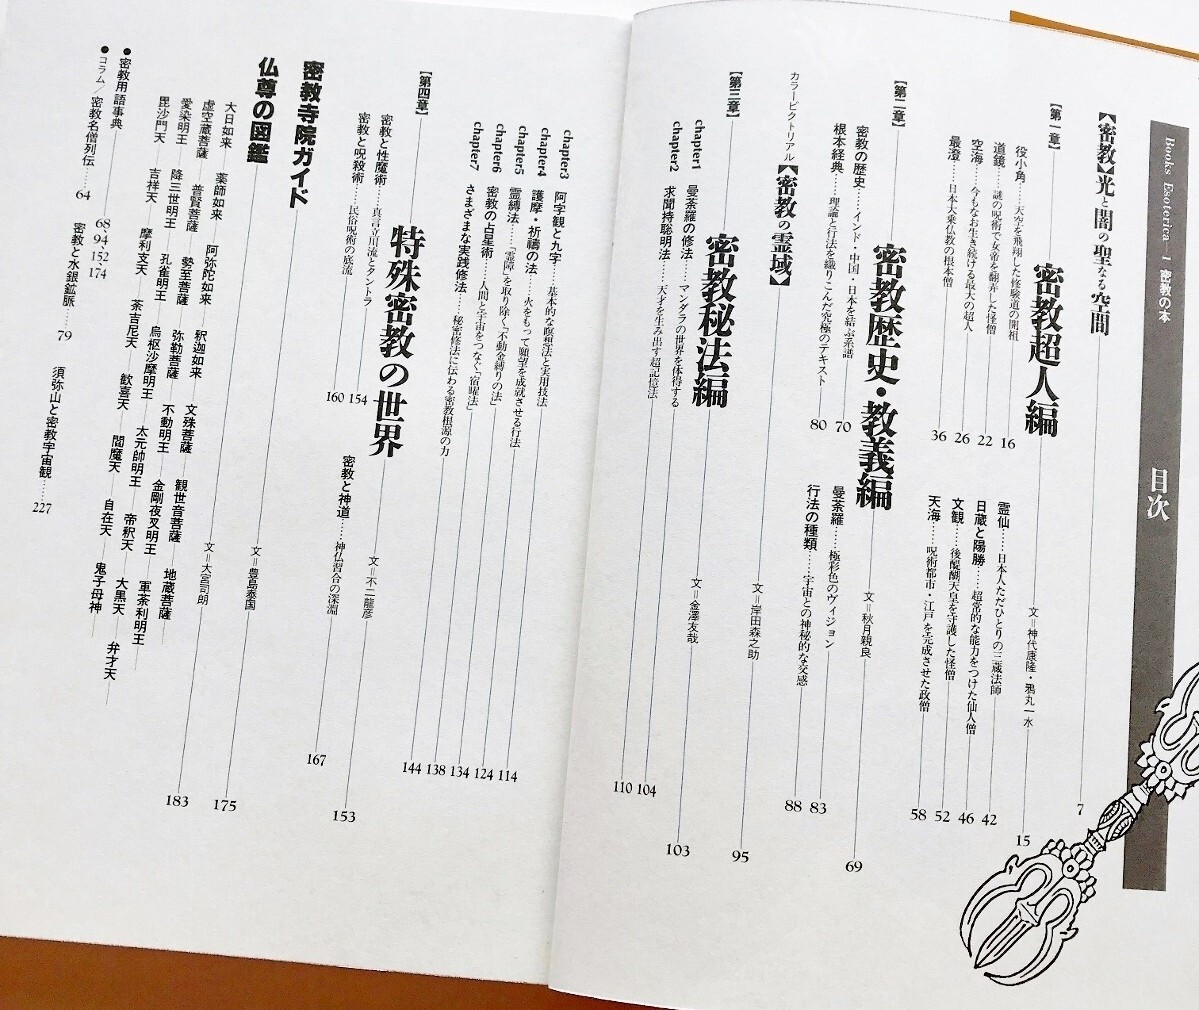 Books Esoterica—1 密教の本
目次
【密教】光と闇の聖なる空間 7
【第一章】密教超人編 文=神代康隆・鴉丸一水 15
役小角……天空を飛翔した修験道の開祖 16
道鏡……謎の呪術で女帝を翻弄した怪僧 22
空海……今もなお生き続ける最大の超人 26
最澄……日本大乗仏教の根本僧 36
霊仙……日本人ただひとりの三蔵法師 42
日蔵と陽勝……超常的な能力をつけた仙人僧 46
文観……後醍醐天皇を守護した怪僧 52
天海……呪術都市・江戸を完成させた政僧 58
【第二章】密教歴史・教義編 文=秋月親良 69
密教の歴史……インド・中国・日本を結ぶ系譜 70
根本経典……理論と行法を織りこんだ究極のテキスト 80
曼荼羅……極彩色のヴィジョン 83
行法の種類……宇宙との神秘的な交感 88
カラーピクトリアル【密教の霊域】 文=岸田森之助 95
【第三章】密教秘法編 文=金澤友哉 103
chapter1 曼荼羅の修法……マンダラの世界を体得する 104
chapter2 求聞持聡明法……天才を生み出す超記憶法 110
chapter3 阿字観と九字……基本的な瞑想法と実用技法 114
chapter4 護摩・祈禱の法……火をもって願望を成就させる行法 124
chapter5 霊縛法……「霊障」を取り除く「不動金縛りの法」 134
chapter6 密教の占星術……人間と宇宙をつなぐ「宿曜法」 138
chapter7 さまざまな実践修法……秘密修法に伝わる密教根源の力 144
【第四章】特殊密教の世界 文=不二龍彦 153
密教と性魔術……真言立川流とタントラ 154
密教と呪殺術……民俗呪術の底流 160
密教と神道……神仏習合の深淵 167
密教寺院ガイド 文=豊島泰国 175
仏尊の図鑑 文=大宮司朗 183
大日如来 薬師如来 阿弥陀如来 釈迦如来 文殊菩薩 観世音菩薩 地蔵菩薩
虚空蔵菩薩 普賢菩薩 勢至菩薩 弥勒菩薩 不動明王 金剛夜叉明王 軍荼利明王
愛染明王 降三世明王 孔雀明王 烏枢沙摩明王 太元帥明王 帝釈天 大黒天 弁才天
毘沙門天 吉祥天 摩利支天 荼吉尼天 歓喜天 閻魔天 自在天 鬼子母神
●密教用語事典 68、94、152、174
●コラム/密教名僧列伝……64 密教と水銀鉱脈……79 須弥山と密教宇宙観……227